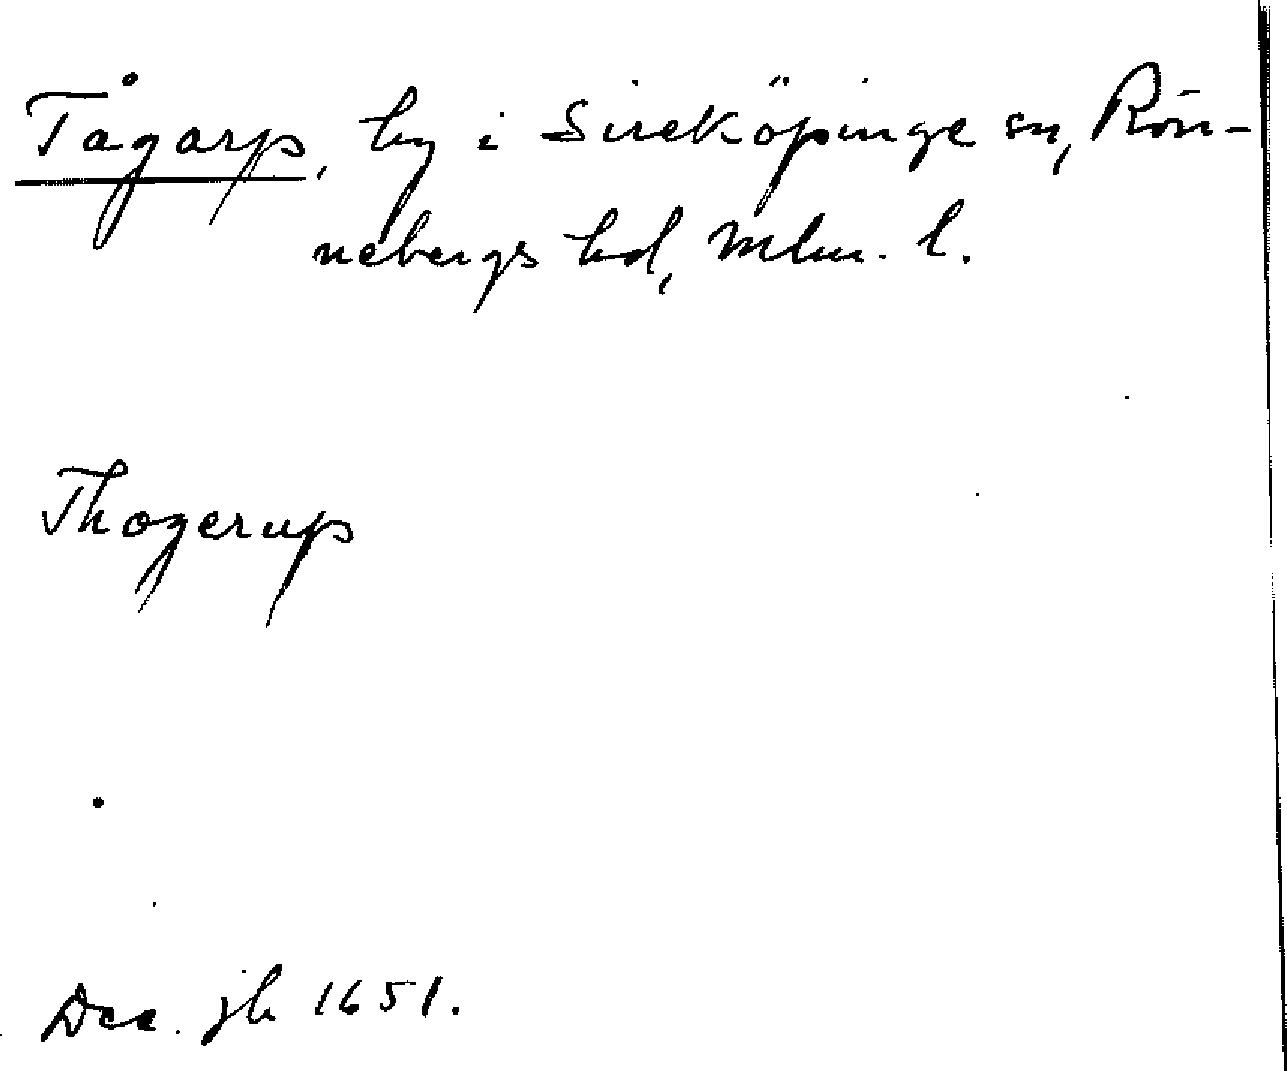 Tågarp, by i Sireköpinge sn, Rön-
nebergs hd, Mlm. l.
Thogerup
Dec. jb 1651.